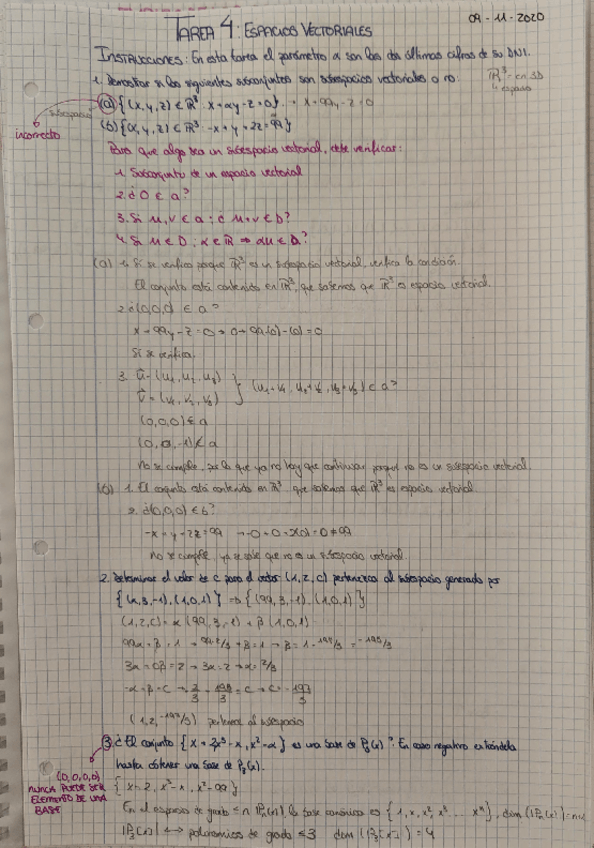 TAREA 4: ESPACIOS VECTORIALES
09-11-2020
INSTRUCCIONES: En esta tarea el parámetro a son las dos últimas cifras de su DNI.
1. Demostrar si los siguientes subconjuntos son subespacios vectoriales o no.
ℝ³ en 3D
espacio
(a) {(x,y,z) ∈ ℝ³ x+ay-z=0} x+99y-z=0
incorrecto
(b) {(x,y,z) ∈ ℝ³ -x+y+2z=99}
Para que algo sea un subespacio vectorial, debe verificar:
1. Subconjunto de un espacio vectorial
2. ¿0 ∈ a?
3. Si u,v ∈ a: ¿u+v ∈ D?
4. Si u ∈ D; α ∈ ℝ ⇒ αu ∈ D?
(a) 1. Sí se verifica porque ℝ³ es un subespacio vectorial, verifica la condición.
El conjunto está contenido en ℝ³, que sabemos que ℝ³ es espacio vectorial.
2. ¿(0,0,0) ∈ a?
x+99y-z=0 → 0+99(0)-(0)=0
Sí se verifica.
3. u=(u₁,u₂,u₃)
v=(v₁,v₂,v₃)
(u₁+v₁,u₂+v₂,u₃+v₃) ∈ a?
(0,0,0) ∈ a
(0,0,-1) ∉ a
No se cumple, por lo que ya no hay que continuar porque no es un subespacio vectorial.
(b) 1. El conjunto está contenido en ℝ³, que sabemos que ℝ³ es espacio vectorial
2. ¿(0,0,0) ∈ b?
-x+y+2z=99 → -0+0+2(0)=0≠99
No se cumple, ya se sabe que no es un subespacio vectorial.
2. Determinar el valor de c para el vector (1,2,c) pertenezca al subespacio generado por
{(a,3,-1),(1,0,1)} ⇒ {(99,3,-1),(1,0,1)}
(1,2,c)=α(99,3,-1)+β(1,0,1)
99α+β=1 → 99·2/3+β=1 → β=1-198/3=-195/3
3α+0β=2 → 3α=2 → α=2/3
-α+β=c → -2/3-195/3=c → c=-197/3
(1,2,-197/3) pertenece al subespacio
3. ¿El conjunto es una base de P₃(x)? En caso negativo extiéndela
hasta obtener una base de P₃(x).
(0,0,0,0)
NUNCA PUEDE SER
ELEMENTO DE UNA
BASE
{x+2, x³-x, x²-99}
En el espacio de grado ≤n ℙn(x), la base canónica es {1,x,x²,x³...xⁿ}, dim (ℙn(x))=n+1
ℙ₃(x) ↔ polinomios de grado ≤3 dim (ℙ₃[x])=4